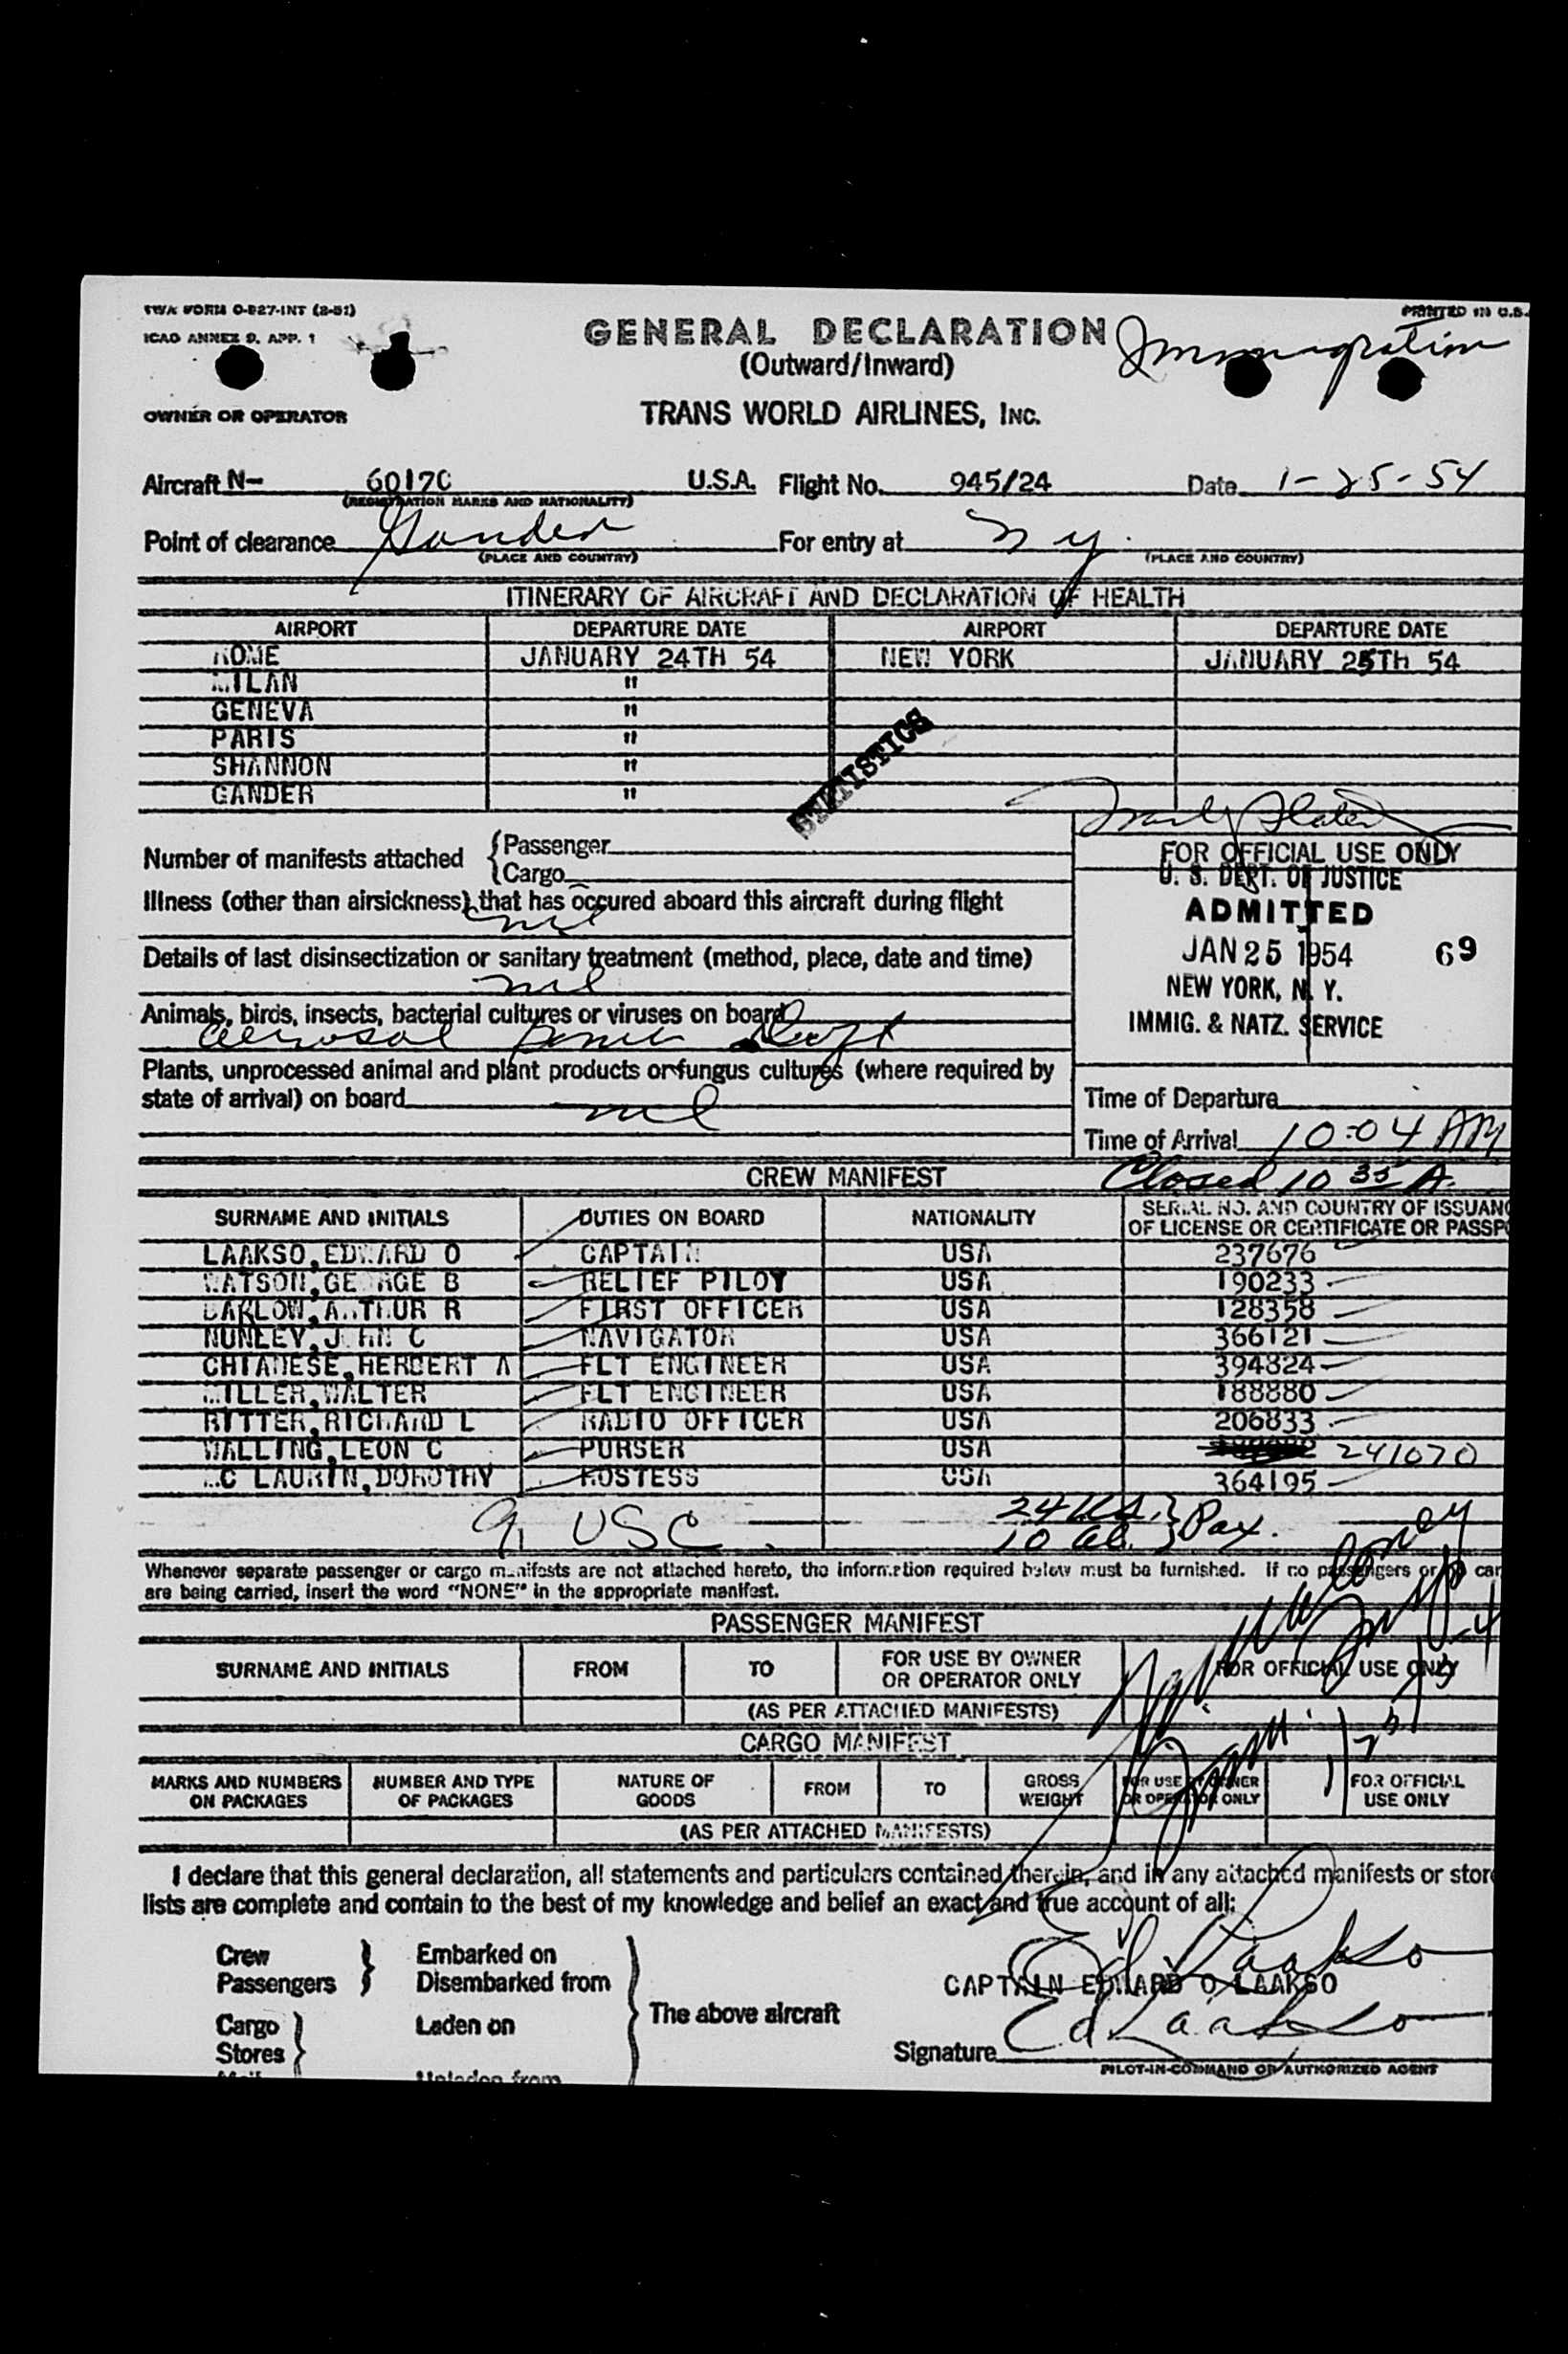 TWA FORM O-827-INT (2-51)
PRINTED IN U.S.
ICAO ANNEX 9, APP. 1
GENERAL DECLARATION
Immigration
(Outward/Inward)
OWNER OR OPERATOR
TRANS WORLD AIRLINES, INC.
Aircraft N- 6017C U.S.A. Flight No. 945/24 Date 1-25-54
(REGISTRATION MARKS AND NATIONALITY)
Point of clearance Gander For entry at NY.
(PLACE AND COUNTRY) (PLACE AND COUNTRY)
ITINERARY OF AIRCRAFT AND DECLARATION OF HEALTH
AIRPORT DEPARTURE DATE AIRPORT DEPARTURE DATE
ROME JANUARY 24TH 54 NEW YORK JANUARY 25TH 54
MILAN "
GENEVA "
PARIS "
SHANNON "
GANDER "
STATISTICS
Number of manifests attached { Passenger
{ Cargo
FOR OFFICIAL USE ONLY
U. S. DEPT. OF JUSTICE
ADMITTED
JAN 25 1954 69
NEW YORK, N. Y.
IMMIG. & NATZ. SERVICE
Illness (other than airsickness) that has occured aboard this aircraft during flight
nil
Details of last disinsectization or sanitary treatment (method, place, date and time)
nil
Animals, birds, insects, bacterial cultures or viruses on board
aerosol
Plants, unprocessed animal and plant products or fungus cultures (where required by
state of arrival) on board nil
Time of Departure
Time of Arrival 10:04 AM
Closed 10 35 A.
CREW MANIFEST
SURNAME AND INITIALS DUTIES ON BOARD NATIONALITY SERIAL NO. AND COUNTRY OF ISSUANC
OF LICENSE OR CERTIFICATE OR PASSPO
LAAKSO, EDWARD O CAPTAIN USA 237676
WATSON, GEORGE B RELIEF PILOT USA 190233
BARLOW, ARTHUR R FIRST OFFICER USA 128358
NUNLEY, JOHN C NAVIGATOR USA 366121
CHIANESE, HERBERT A FLT ENGINEER USA 394824
MILLER, WALTER FLT ENGINEER USA 188880
RITTER, RICHARD L RADIO OFFICER USA 206833
WALLING, LEON C PURSER USA 241070
MC LAURIN, DOROTHY HOSTESS USA 364195
9 USC
24 U.S. } Pax.
10 al. }
Whenever separate passenger or cargo manifests are not attached hereto, the information required below must be furnished. If no passengers or no car
are being carried, insert the word "NONE" in the appropriate manifest.
PASSENGER MANIFEST
SURNAME AND INITIALS FROM TO FOR USE BY OWNER OR OPERATOR ONLY FOR OFFICIAL USE ONLY
(AS PER ATTACHED MANIFESTS)
CARGO MANIFEST
MARKS AND NUMBERS ON PACKAGES NUMBER AND TYPE OF PACKAGES NATURE OF GOODS FROM TO GROSS WEIGHT FOR USE BY OWNER OR OPERATOR ONLY FOR OFFICIAL USE ONLY
(AS PER ATTACHED MANIFESTS)
I declare that this general declaration, all statements and particulars contained therein, and in any attached manifests or store
lists are complete and contain to the best of my knowledge and belief an exact and true account of all:
Crew } Embarked on
Passengers } Disembarked from
Cargo } Laden on
Stores }
Mail Unladen from
The above aircraft
Ed Laakso
CAPTAIN EDWARD O LAAKSO
Signature Ed Laakso
PILOT-IN-COMMAND OR AUTHORIZED AGENT